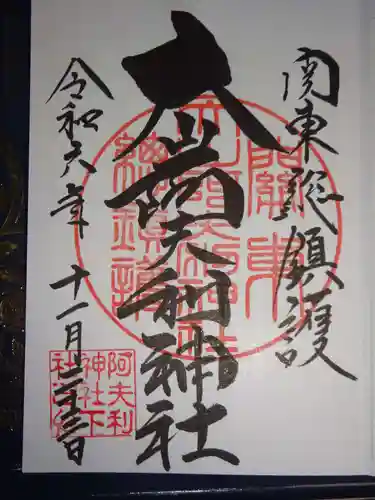 関東総鎮護
大山阿夫利神社
令和六年
十一月二十三日
阿夫利
神社下